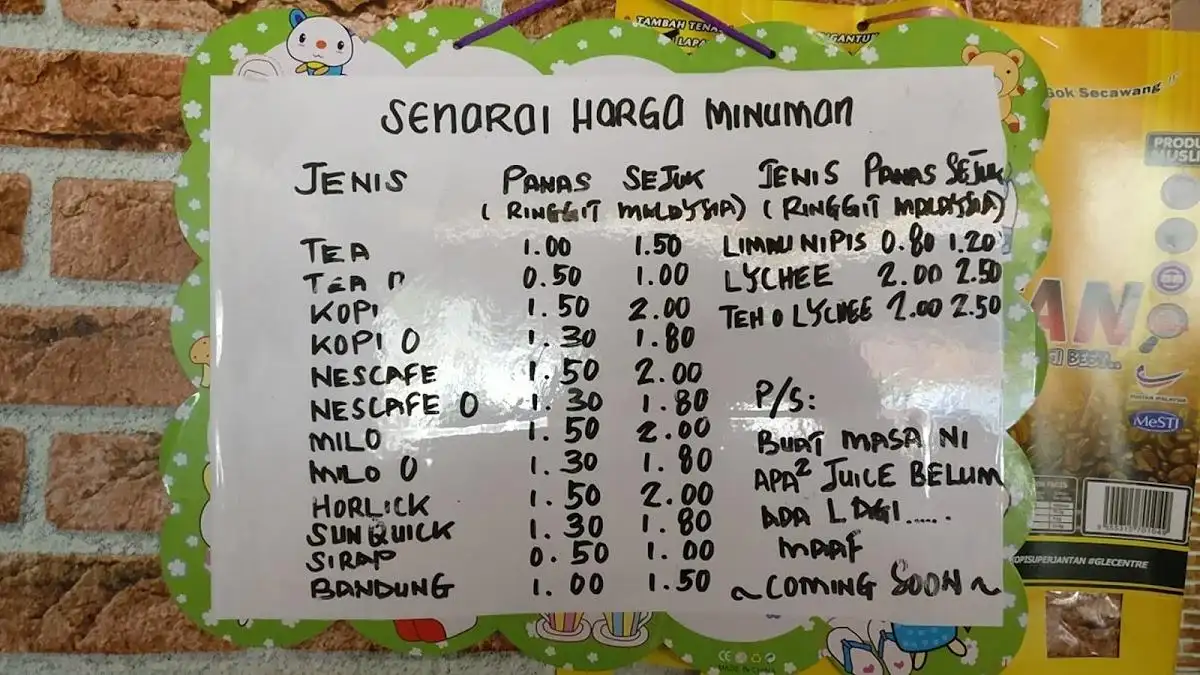 SENARAI HARGA MINUMAN
JENIS PANAS SEJUK
( RINGGIT MALAYSIA)
TEA 1.00 1.50
TEA O 0.50 1.00
KOPI 1.50 2.00
KOPI O 1.30 1.80
NESCAFE 1.50 2.00
NESCAFE O 1.30 1.80
MILO 1.50 2.00
MILO O 1.30 1.80
HORLICK 1.50 2.00
SUNQUICK 1.30 1.80
SIRAP 0.50 1.00
BANDUNG 1.00 1.50
JENIS PANAS SEJUK
( RINGGIT MALAYSIA)
LIMAU NIPIS 0.80 1.20
LYCHEE 2.00 2.50
TEH O LYCHEE 2.00 2.50
P/S:
BUAT MASA NI
APA² JUICE BELUM
ADA LAGI.....
MAAF
~COMING SOON~
TAMBAH TENA
LAPA
NGANTUK
Gok Secawang
PRODU
MUSLI
AN
di BEST..
MeSTI
KOPISUPERJANTAN #GLECENTRE
CE
MADE IN CHINA